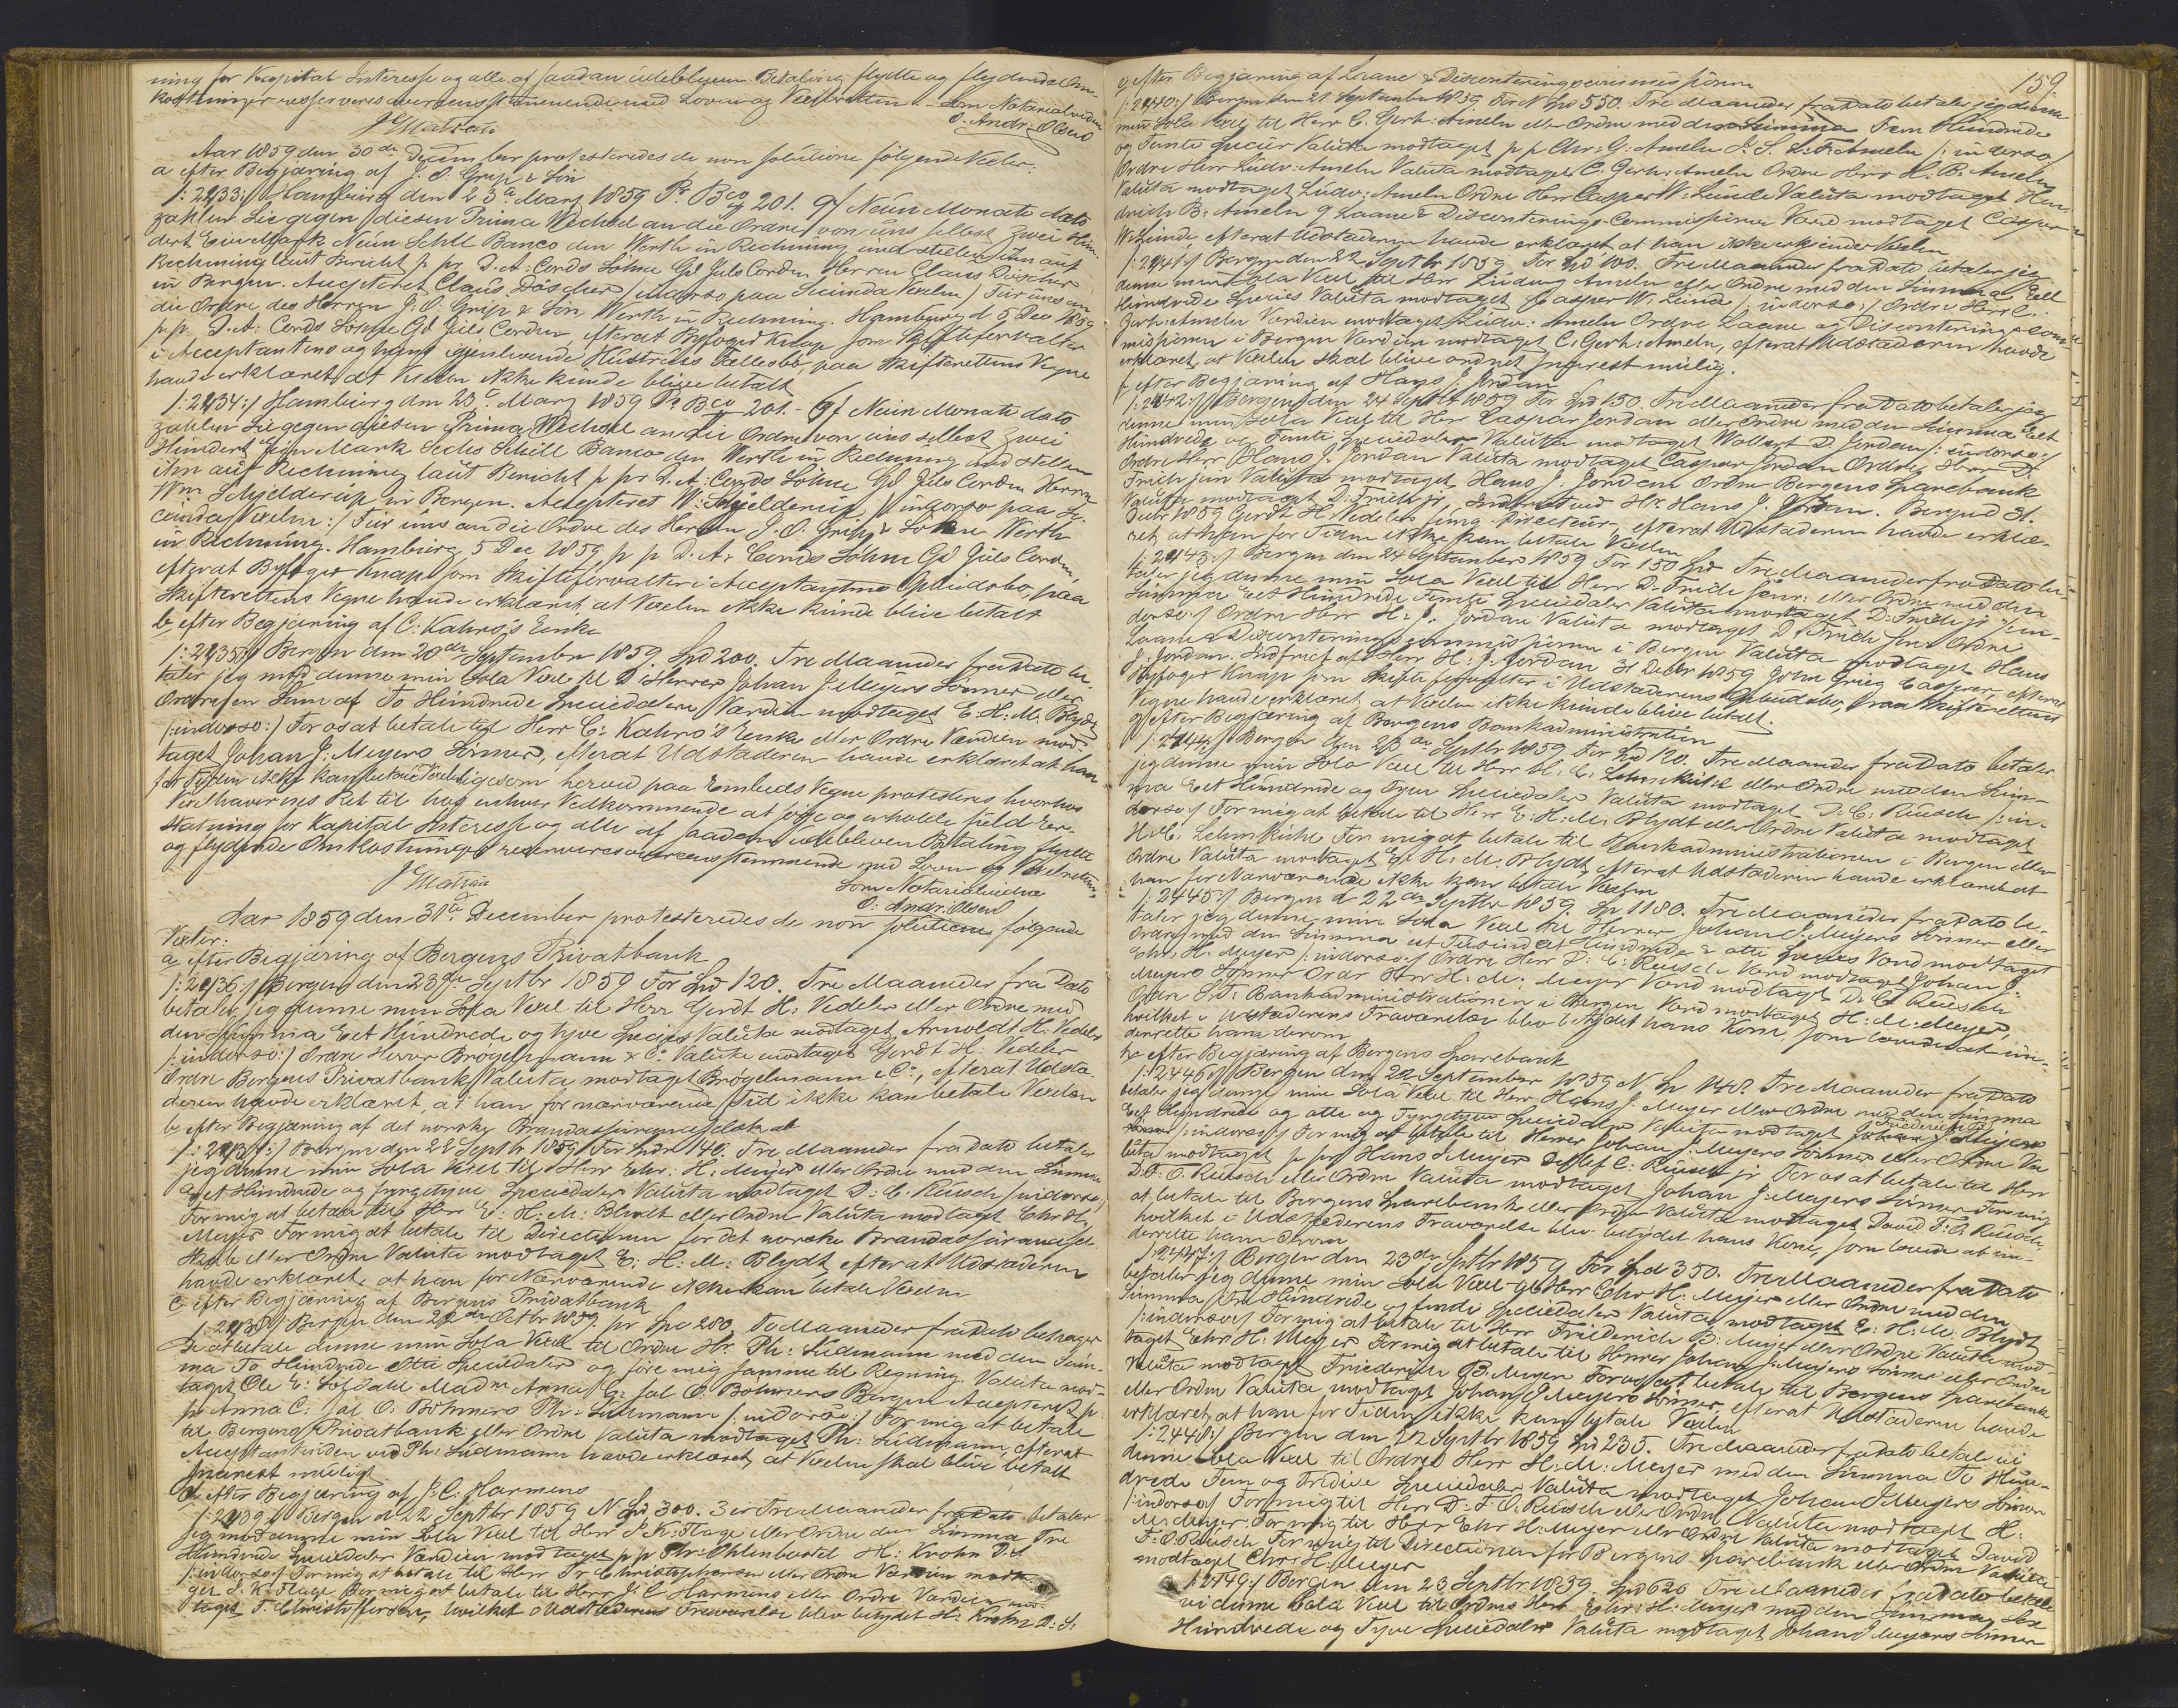 ning for Kapital Interesse og alle af saadan udebleven Betaling flydte og flydende Om-
kostninger reserveres overensstemmende med Loven og Vexelretten. - Som Notarialvidne
J C Matzau O. Andr: Olsen
Aar 1859 den 30de December protesteredes de non solutione følgende Vexler:
a efter Begjæring af J. O. Grip & Søn
/:2233:/ Hamburg den 23a Marz 1859 Pr Bco 201. 9/ Neun Monate dato
zahlen Sie gegen diesen Prima Wechsel an die Ordre von uns selbst Zwei Hun-
dert Ein Mark Neun Schll Banco den Werth in Rechnung und stellen ihn auf
Rechnung laut Bericht p pr D. A: Cords Söhne Gd Juls Corden Herrn Claus Döscher
in Bergen. Accepteret Claus Döscher /indorso paa Secunda Vexlen/ Für uns an
die Ordre des Herren J. O. Grip & Sön Werth in Rechnung. Hamburg d 5 Dec 1859
p p. D. A: Cords Söhne Gd Juls Corden, efterat Byfoged Knap som Skifteforvalter
i Acceptantens og hans igjenlevende Hustrues Fallesbo, paa Skifterettens Vegne
havde erklæret, at Vexlen ikke kunde blive betalt
/:2234:/ Hamburg den 23a Marz 1859 Pr Bco 201.- 6/ Neun Monate dato
zahlen Sie gegen diesen Prima Wechsel an die Ordre von uns selbst Zwei
Hundert Ein Mark Sechs Schill Banco den Werth in Rechnung und stellen
ihn auf Rechnung laut Bericht p pr D. A: Cords Söhne Gd Juls Corden Herrn
Wm Schjelderup in Bergen. Accepteret W: Schjelderup /indorso paa Se-
cunda Vexlen:/ Für uns an die Ordre des Herren J. O. Grip & Söhne Werth
in Rechnung. Hamburg 5 Dec 1859 p p D. A: Cords Söhne Gd Juls Corden,
efterat Byfoged Knap som Skifteforvalter i Acceptantens Opbudsbo, paa
Skifterettens Vegne havde erklæret, at Vexlen ikke kunde blive betalt
b efter Begjæring af C: Kahrs's Enke
/:2235:/ Bergen den 20de September 1859. Spd 200. Tre Maaneder fra Dato be-
taler jeg mod denne min Sola Vexel til D'Herrer Johan J. Meyers Sønner eller
Ordre en Sum af To Hundrede Speciedalere Værdien modtaget E. H. M. Blydt
/:indorso:/ For os at betale til Herr C: Kahrs's Enke eller Ordre Værdien mod-
taget Johan J: Meyers Sønner, efterat Udstederen havde erklæret at han
for Tiden ikke kan betale Vexlen ligesom herved paa Embeds Vegne protesteres hvorhos
Vexelhaverens Ret til hos enhver Vedkommende at søge og erholde fuld Er-
statning for Kapital Interesse og alle af saadan udebleven Betaling flydte
og flydende Omkostninger reserveres overensstemmende med Loven og Vexelretten,
J C Matzau Som Notarialvidne
O: Andr: Olsen
Aar 1859 den 31te December protesteredes de non solutione følgende
Vexler:
a efter Begjæring af Bergens Privatbank
/:2236:/ Bergen den 23de Septbr 1859 For Spd 120. Tre Maaneder fra Dato
betaler jeg denne min Sola Vexel til Herr Gerdt H: Vedeler eller Ordre med
den Summa Eet Hundrede og tyve Species Valuta modtaget Arnoldt H. Vedeler
/:indorso:/ Ordre Herrer Brøgelmann & Co Valuta modtaget Gerdt H. Vedeler
Ordre Bergens Privatbank Valuta modtaget Brøgelmann & Co, efterat Udste-
deren havde erklæret, at han for nærværende Tid ikke kan betale Vexlen
b efter Begjæring af det norske Brandassuranceselskab
/:2237:/ Bergen den 22 Septbr 1859 For Spdr 140. Tre Maaneder fra Dato betaler
jeg denne min Sola Vexel til Herr Chr: H: Meyer eller Ordre med den Summa
eet Hundrede og fyrgetyve Speciedaler Valuta modtaget D: C. Reusch /indorso:/
For mig at betale til Herr E: H: M: Blydt eller Ordre Valuta modtaget Chr H.
Meyer For mig at betale til Directionen for det norske Brandassurancesel-
skab eller Ordre Valuta modtaget E: H: M: Blydt, efterat Udstederen
havde erklæret, at han for Nærværende ikke kan betale Vexlen
c efter Begjæring af Bergens Privatbank
/:2238:/ Bergen den 22de Octbr 1859 pr Spe 280, To Maaneder fra Dato behager
De at betale denne min Sola Vexel til Ordre Hr. Ph: Südmann med den Sum-
ma To Hundrede Otte Speciedaler og føre mig samme til Regning. Valuta mod-
taget Ole E: Sofdahl Madm Anna C: sal O. Bøhmers Bergen Accepteret p
pr Anna C: sal O. Bøhmers Ph: Südmann /:indorso:/ For mig at betale
til Bergens Privatbank eller Ordre Valuta modtaget Ph: Südmann, efterat
Acceptantinden ved Ph: Südmann havde erklæret, at Vexlen skal blive betalt
snarest muligt
d efter Begjæring af J: C. Harmens
/:2239:/ Bergen d 22 Septbr 1859 N Spd 300. 3 er Tre Maaneder fra Dato betaler
jeg mod denne min Sola Vexel til Herr S. K: Flage eller Ordre den Summa Tre
Hundrede Speciedaler Værdien modtaget p p Thr: Ohlenbostel H: Krohn D. S.
/:indorso:/ For mig at betale til Herr Fr Christophersen eller Ordre Værdien modta-
get S. K. Flage. For mig at betale til Herr J: C Harmens eller Ordre Værdien mod-
taget F: Christoffersen, hvilket i Udstederens Fraværelse blev betydet H: Krohn D: S:
159.
e efter Begjæring af Laane & Disconteringscommissionen
/:2240:/ Bergen den 21 September 1859. For N Spd 550. Tre Maaneder fra Dato betaler jeg denne
min Sola Vexel til Herr C. Gerh: Ameln eller Ordre med den Summa Fem Hundrede
og Femti Species Valuta modtaget p p Chr: G: Ameln S. S. L: F: Ameln /:indorso:/
Ordre Herr Ludv: Ameln Valuta modtaget C. Gerh: Ameln Ordre Herr H. B. Ameln
Valuta modtaget Ludv: Ameln Ordre Herr Casper W: Lunde Valuta modtaget Hen-
drich B: Ameln Laane & Disconterings-Commissionen Værd modtaget Casper
W: Lunde, efterat Udstederen havde erklæret, at han ikke erkjender Vexlen
/:2241:/ Bergen den 22 Septbr 1859 For Spd 100. Tre Maaneder fra Dato betaler jeg
denne min Sola Vexel til Herr Ludvig Ameln eller Ordre med den Summa Eet
Hundrede Species Valuta modtaget Casper W: Lunde /:indorso:/ Ordre Herr C:
Gerh: Ameln Værdien modtaget Ludv: Ameln Ordre Laane og Disconteringscom-
missionen i Bergen Værdien modtaget C: Gerh: Ameln, efterat Udstederen havde
erklæret, at Vexlen skal blive ordnet snarest mulig.
f efter Begjæring af Hans J. Jordan
/:2242:/ Bergen den 24 Septbr 1859 For Spd 150. Tre Maaneder fra Dato betaler jeg
denne min Sola Vexel til Herr Casper Jordan eller Ordre med den Summa Eet
Hundrede og Femti Speciedaler Valuta modtaget Wollert D. Jordan /:indorso:/
Ordre Herr Hans J. Jordan Valuta modtaget Casper Jordan Ordre Herr D.
Friele jun Valuta modtaget Hans J: Jordan Ordre Bergens Sparebank
Valuta modtaget D. Friele jr, Indfriet ved Hr. Hans J. Jordan. Bergen d 31.
Decbr 1859 Gerdt H. Vedeler fung. Directeur, efterat Udstederen havde erklæ-
ret, at han for Tiden ikke kan betale Vexlen
/:2243:/ Bergen den 24 September 1859 For 150 Spd Tre Maaneder fra Dato be-
taler jeg denne min Sola Vexel til Herr D. Friele junr: eller Ordre med den
Summa Eet Hundrede Femti Speciedaler Valuta modtaget D: Friele jr /:in-
dorso:/ Ordre Herr H: J. Jordan Valuta modtaget D. Friele jun Ordre
Laane & Disconteringscommissionen i Bergen Valuta modtaget Hans
J. Jordan. Indfriet af Herr H: J. Jordan 31 Decbr 1859 John Grieg Casserer, efterat
Byfoged Knap som Skifteforvalter i Udstederens Opbudsbo, paa Skifterettens
Vegne havde erklæret, at Vexlen ikke kunde blive betalt.
g efter Begjæring af Bergens Bankadministration
/:2244:/ Bergen den 23de Septbr 1859 For Spd 120. Tre Maaneder fra Dato betaler
jeg denne min Sola Vexel til Herr H. C. Lehmkuhl eller Ordre med den Sum-
ma Eet Hundrede og tyve Speciedaler Valuta modtaget D: C. Reusch /:in-
dorso:/ For mig at betale til Herr E: H: M. Blydt eller Ordre Valuta modtaget
H: C. Lehmkuhl For mig at betale til Bankadministrationen i Bergen eller
Ordre Valuta modtaget E. H: M. Blydt, efterat Udstederen havde erklæret at
han for Nærværende ikke kan betale Vexlen
/:2245:/ Bergen d 22de Septbr 1859. Sp 1180. Tre Maaneder fra Dato be-
taler jeg denne min Sola Vexel til Herrer Johan J. Meyers Sønner eller
Ordre med den Summa eet Tusind et Hundrede & otti Species Værd modtaget
Chr. H. Meyer /:indorso:/ Ordre Herr D: C: Reusch Værd modtaget Johan J.
Meyers Sønner Ordr Herr H: M: Meyer Værd modtaget D: C. Reusch
Ordre S. T. Bankadministrationen i Bergen Værd modtaget H: M: Meyer,
hvilket i Udstederens Fraværelse blev betydet hans Kone, som lovede at un-
derrette ham derom
h efter Begjæring af Bergens Sparebank
/:2246:/ Bergen den 22 September 1859 N Sp 148. Tre Maaneder fra Dato
betaler jeg denne min Sola Vexel til Herr Hans J. Meyer eller Ordre med den Summa
Eet Hundrede og otte og Fyrgetyve Speciedaler Valuta modtaget Friederich B. Meyer
/:indorso:/ For mig at betale til Herrer Johan J. Meyers Sønner eller Ordre Va-
luta modtaget p pr Hans J. Meyer Detlef C. Reusch jr For os at betale til Herr
D. F. O. Reusch eller Ordre Valuta modtaget Johan J. Meyers Sønner For mig
at betale til Bergens Sparebank eller Ordre Valuta modtaget David F. O. Reusch,
hvilket i Udstederens Fraværelse blev betydet hans Kone, som lovede at un-
derrette ham derom
/:2247:/ Bergen den 23de Septbr 1859 For Spd 350. Tre Maaneder fra Dato
betaler jeg denne min Sola Vexel til Herr Chr H. Meyer eller Ordre med den
Summa Tre Hundrede og femti Speciedaler Valuta modtaget E: H: M. Blydt
/:indorso:/ For mig at betale til Herr Friederich B. Meyer eller Ordre Valuta mod-
taget Chr H. Meyer For mig at betale til Herrer Johan J. Meyers Sønner eller Ordre
Valuta modtaget Friederich B. Meyer For os at betale til Bergens Sparebank
eller Ordre Valuta modtaget Johan J Meyers Sønner, efterat Udstederen havde
erklæret, at han for Tiden ikke kan betale Vexlen
/:2248:/ Bergen den 22 Septbr 1859 Spd 235. Tre Maaneder fra Dato betale vi
denne Sola Vexel til Ordre Herr H: M: Meyer med den Summa To Hun-
drede Fem og Tredive Speciedaler Valuta modtaget Johan J Meyers Sønner
/:indorso:/ For mig til Herr D: F. O. Reusch eller Ordre Valuta modtaget H:
M: Meyer. For mig til Herr Chr H: Meyer eller Ordre Valuta modtaget David
F. O. Reusch For mig til Directionen for Bergens Sparebank eller Ordre Valuta
modtaget Chr: H. Meyer
/:2249:/ Bergen den 23 Septbr 1859. Spd 620 Tre Maaneder fra Dato betale
vi denne Sola Vexel til Ordres Herr Chr: H: Meyer med den Summa Sex
Hundrede og Tyve Speciedaler Valuta modtaget Johan J Meyers Sønner